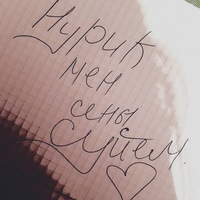 Нурик
мен
сены
сүйем